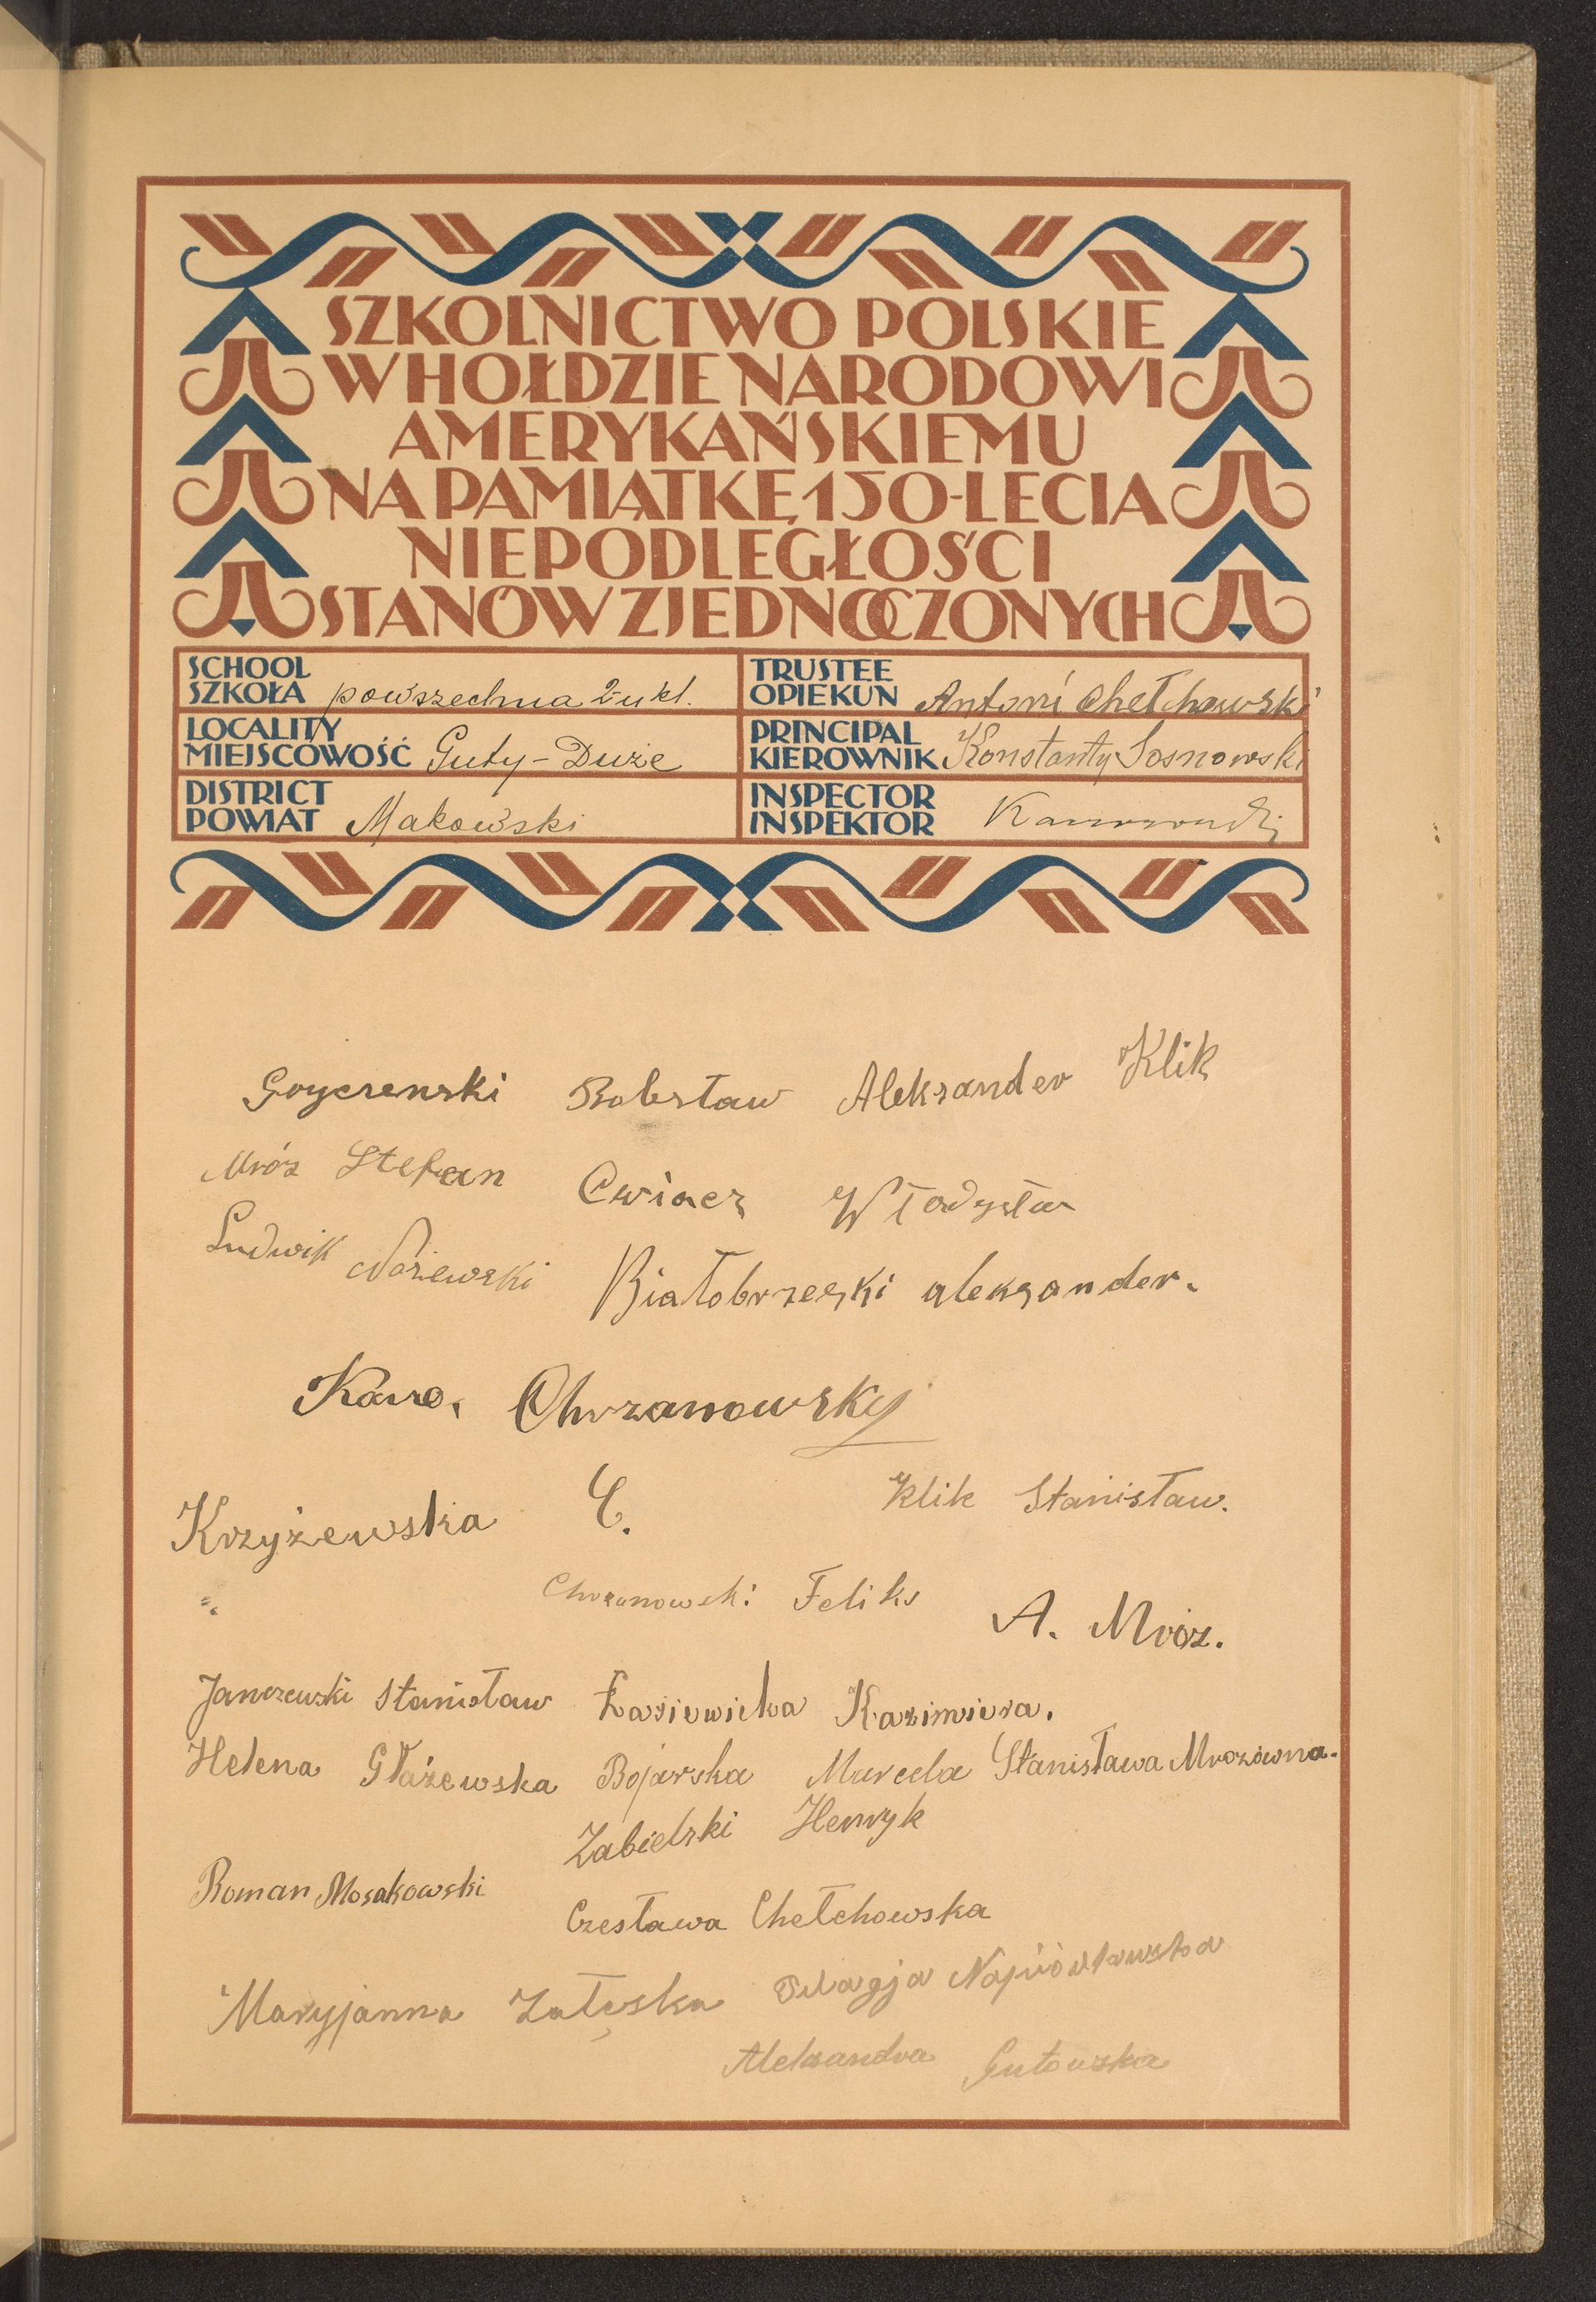 SZKOLNICTWO POLSKIE
W HOŁDZIE NARODOWI
AMERYKAŃSKIEMU
NA PAMIĄTKĘ 150-LECIA
NIEPODLEGŁOŚCI
STANÓW ZJEDNOCZONYCH
SCHOOL
SZKOŁA powszechna 2-u kl.
TRUSTEE
OPIEKUN Antoni Chełchowski
LOCALITY
MIEJSCOWOŚĆ Guty-Duże
PRINCIPAL
KIEROWNIK Konstanty Sosnowski
DISTRICT
POWIAT Makowski
INSPECTOR
INSPEKTOR
Bolesław Aleksander Klik
Mróz Stefan Cwiacz Władysław
Ludwik Nożewski Białobrzeski aleksander.
Karo. Chrzanowsky
Krzyżewska C. Klik Stanisław.
Chrzanowski Feliks A. Mróz.
Janczewski Stanisław Kazimiera.
Helena Głażewska Bojarska Marcela Stanisława Mrozówna.
Zabielski Henryk
Roman Mosakowski
Czesława Chełchowska
Maryjanna Załęska Napiórkowska
Aleksandra Gutowska